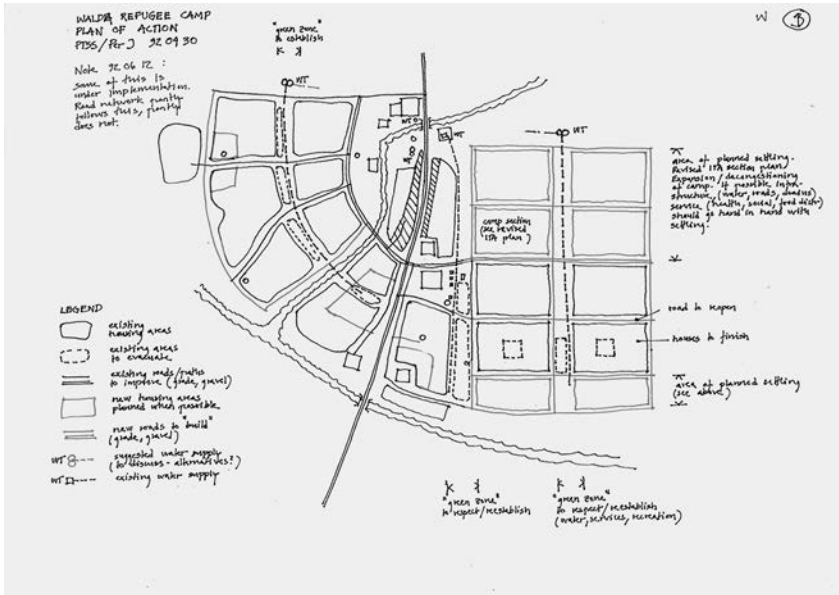 WALDA REFUGEE CAMP
PLAN OF ACTION
PTSS/Per J 92 09 30
Note 92 06 12 :
some of this is
under implementation.
Road network partly
follows this, partly
does not.
"green zone"
to establish
WT
W 3
WT
WT
WT
WT
area of planned settling.
Revised ITA section plan)
Expansion/decongestioning
of camp. If possible infra-
structure, (water, roads,
service (health, social, food distr)
should go hand in hand with
settling.
camp section
(see revised
ITA plan)
road to reopen
houses to finish
area of planned settling
(see above)
LEGEND
existing
housing areas
existing areas
to evaluate
existing roads/paths
to improve (grade, gravel)
new housing areas
planned when possible
new roads to "build"
(grade, gravel)
WT suggested water supply
(to discuss - alternatives?)
WT existing water supply
"green zone"
to respect/reestablish
"green zone"
to respect/reestablish
(water, services, recreation)